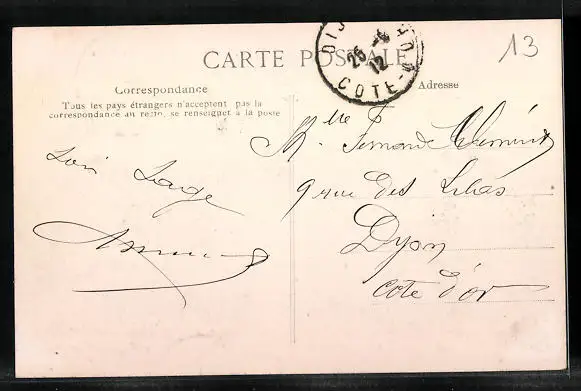 13
CARTE POSTALE
DIJON
25 -4
12
COTE-D'OR
Correspondance
Tous les pays étrangers n'acceptent pas la
correspondance au recto, se renseigner à la poste
Adresse
Mlle Fernande
9 rue des Lilas
Dijon
Cote d'or